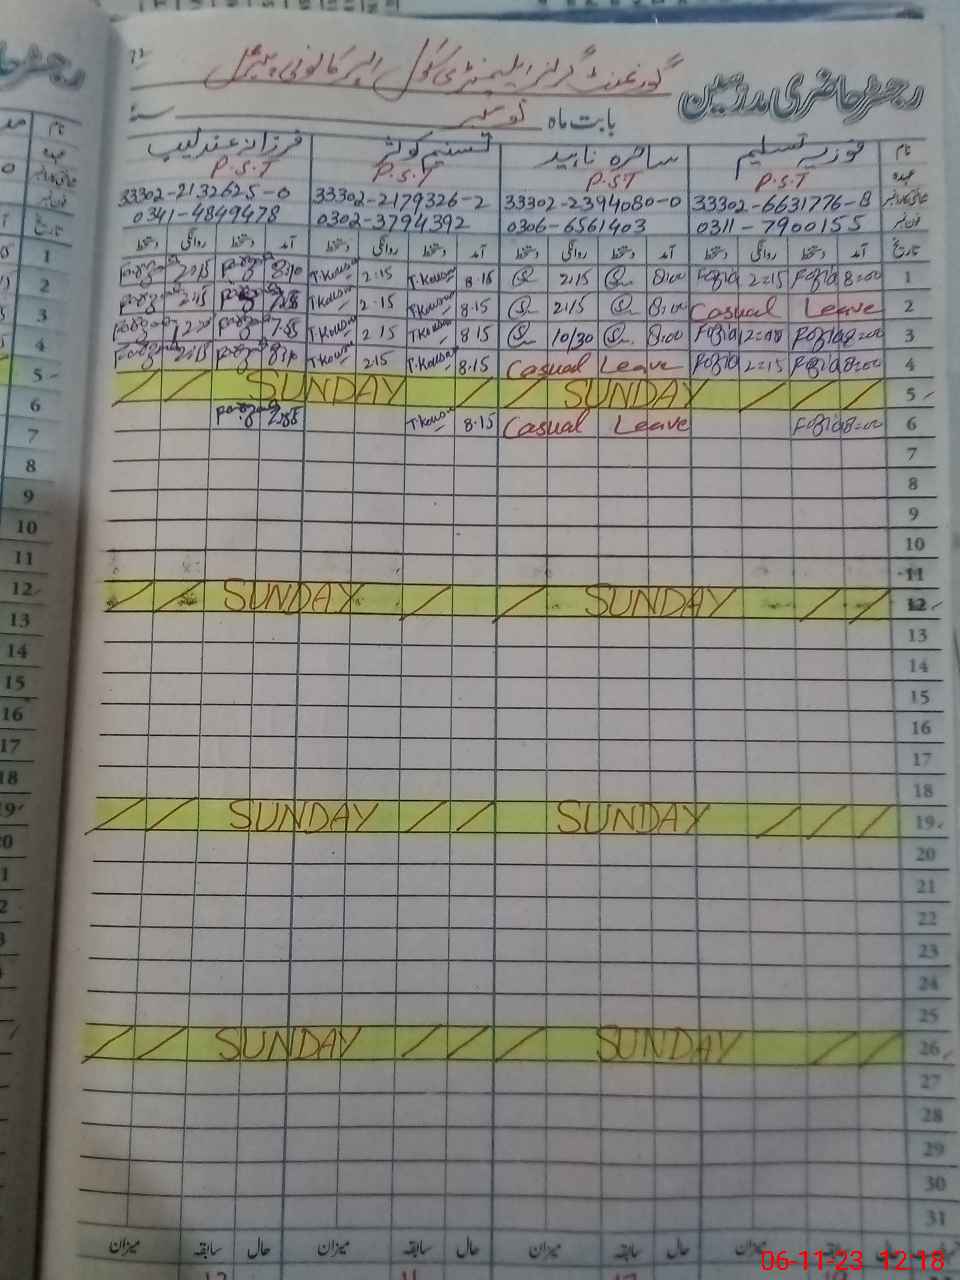 رجسٹر حاضری مدرسین گورنمنٹ گرلز ایلیمنٹری سکول
بابت ماہ نومبر سنہ
نام فوزیہ تسلیم ساحرہ ناہید تسنیم کوثر فرزانہ عندلیب
عہدہ P.S.T P.S.T P.S.T P.S.T
33302-6631776-8 33302-2394080-0 33302-2179326-2 33302-2132625-0
فون نمبر 0311-7900155 0306-6561403 0302-3794392 0341-4849478
تاریخ آمد دستخط روانگی دستخط آمد دستخط روانگی دستخط آمد دستخط روانگی دستخط آمد دستخط روانگی دستخط
1 8=00 Fozia 2=15 Fozia 8:00 2:15 8.15 T.Kousar 2:15 T.Kousar 8:10 2:15
2 Casual Leave 8:00 2:15 8.15 T.Kousar 2.15 T.Kousar 2:15
3 8=00 Fozia Fozia 8:00 10/30 8.15 T.Kousar 2.15 T.Kousar 7:55
4 8=00 Fozia 2=15 Fozia Casual Leave 8.15 T.Kousar 2.15 T.Kousar 8:10 2:15
5 SUNDAY SUNDAY
6 8=00 Fozia Casual Leave 8.15 T.Kousar
7
8
9
10
11
12 SUNDAY SUNDAY
13
14
15
16
17
18
19 SUNDAY SUNDAY
20
21
22
23
24
25
26 SUNDAY SUNDAY
27
28
29
30
31
حال سابقہ میزان حال سابقہ میزان حال سابقہ میزان حال سابقہ میزان
06-11-23 12:18